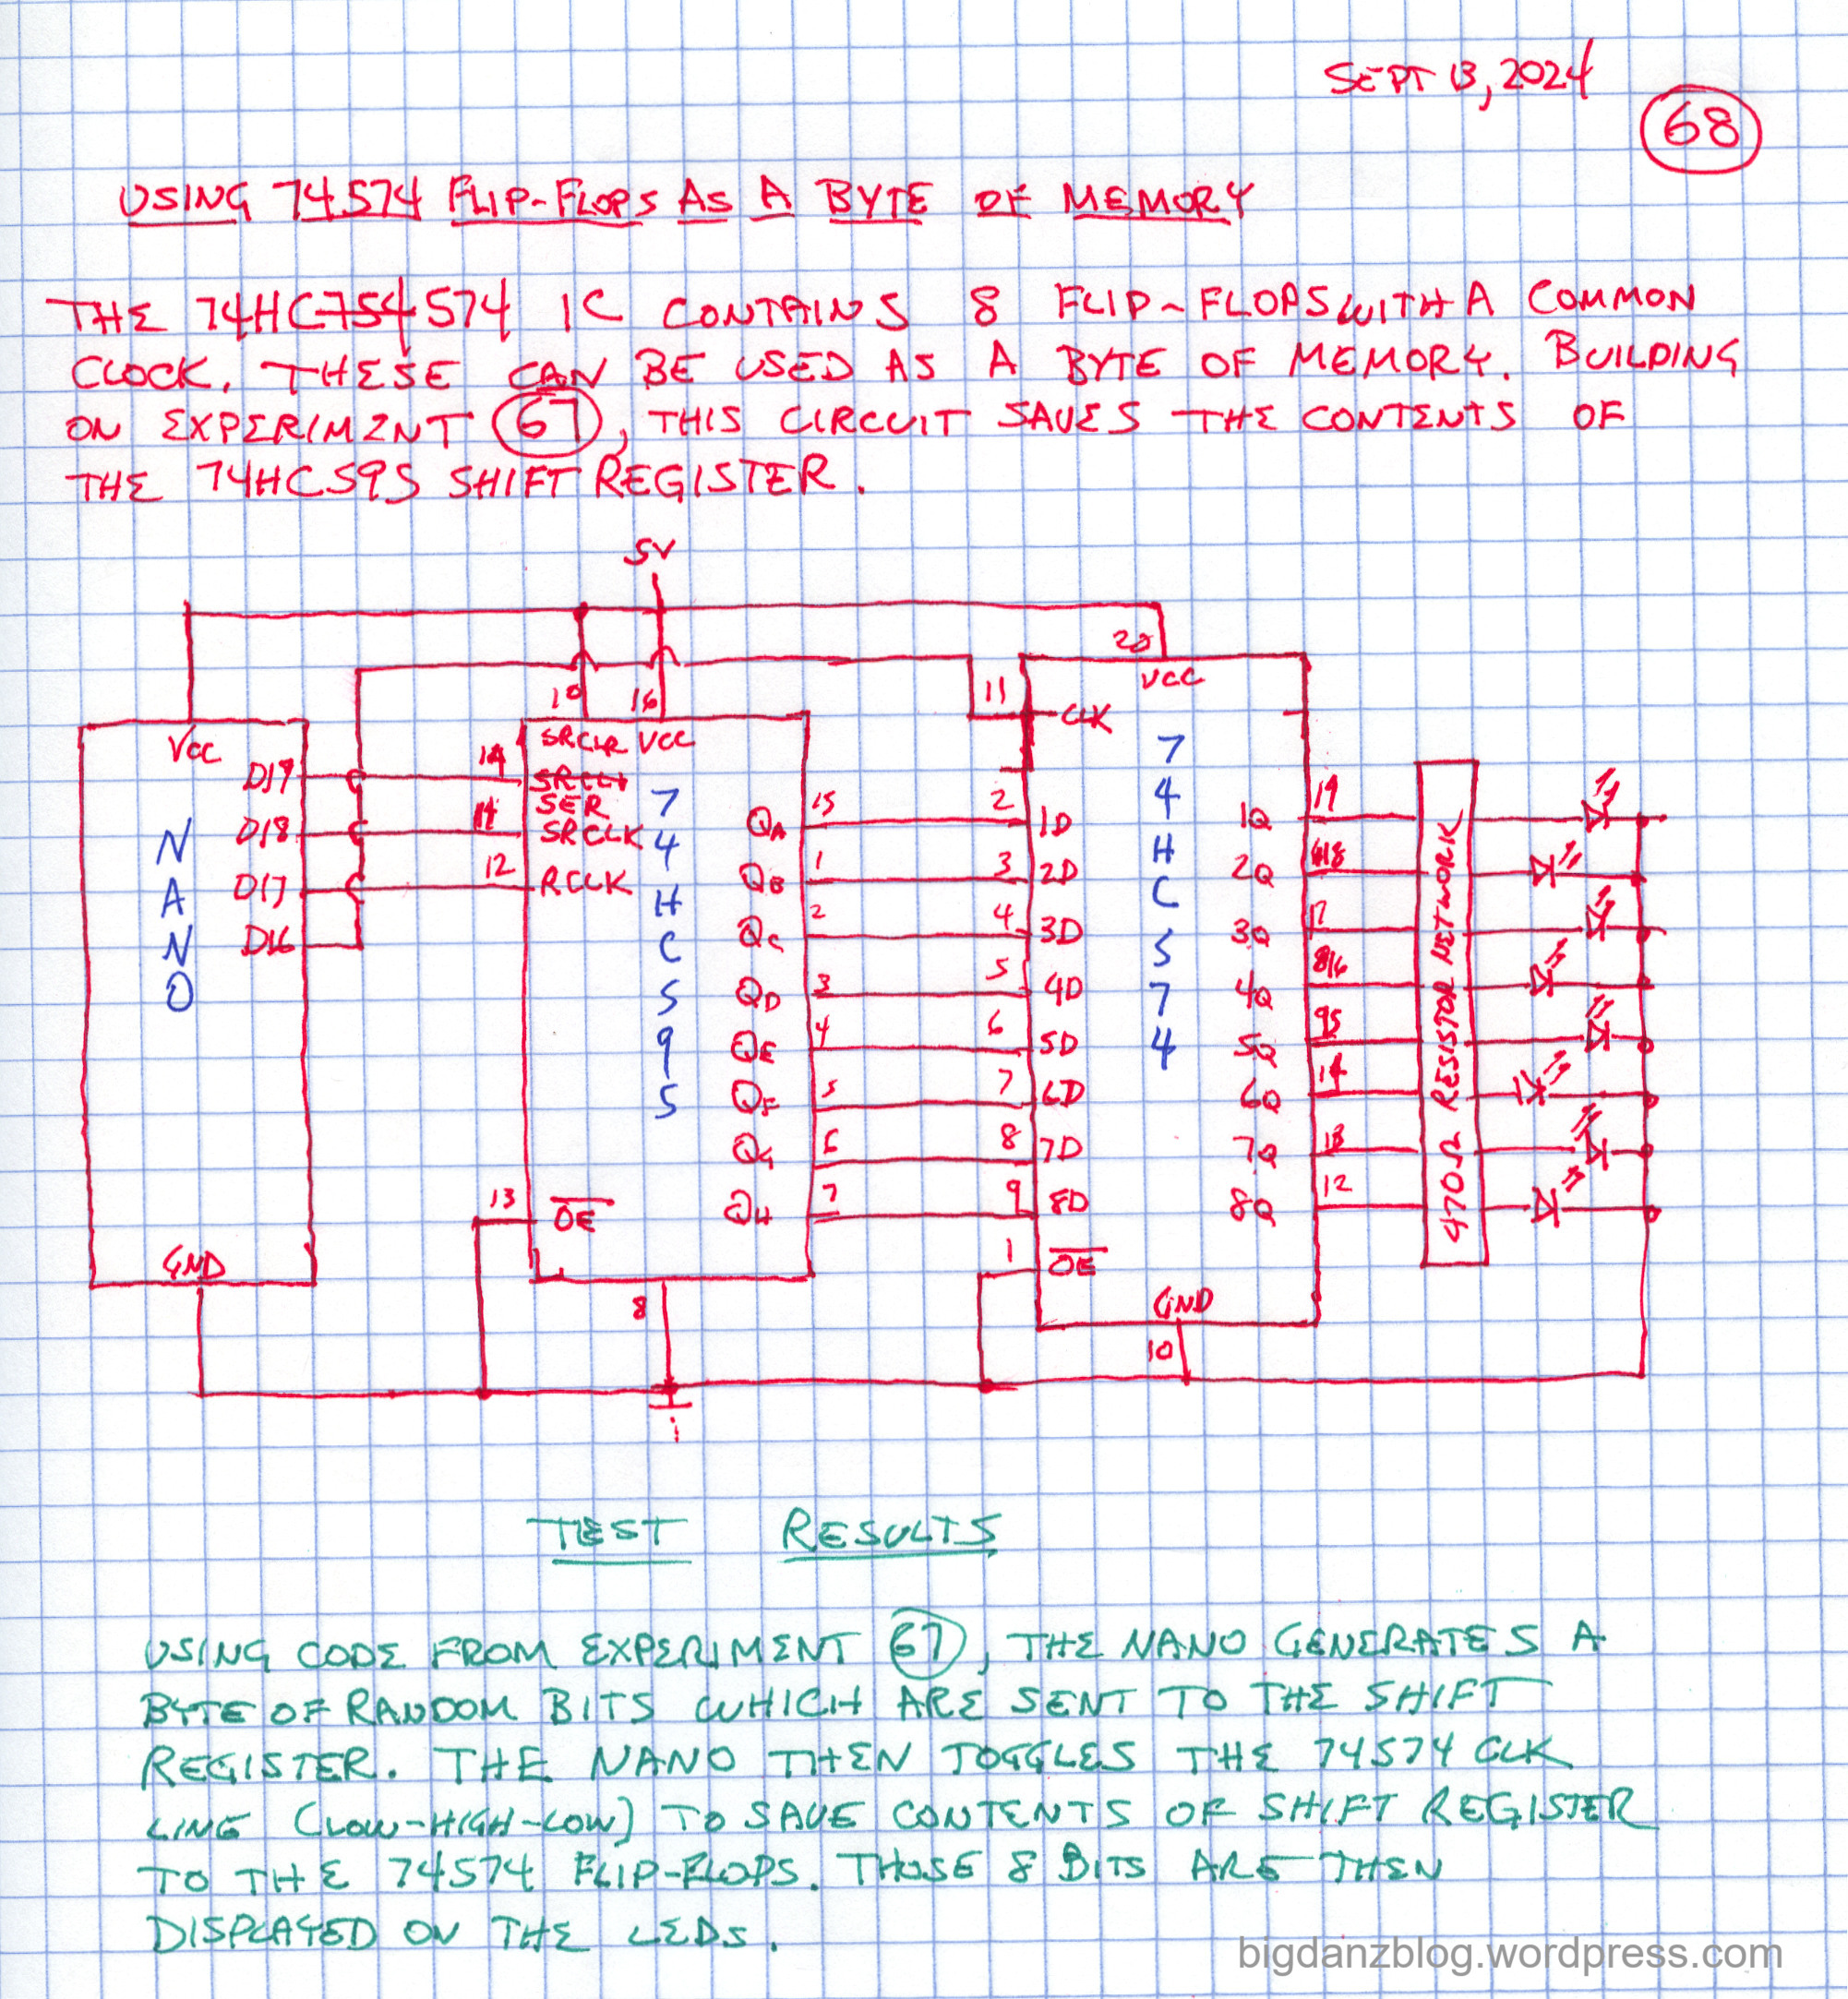 SEPT 13, 2024
68
USING 74574 FLIP-FLOPS AS A BYTE OF MEMORY
THE 74HC754 574 IC CONTAINS 8 FLIP-FLOPS WITH A COMMON
CLOCK. THESE CAN BE USED AS A BYTE OF MEMORY. BUILDING
ON EXPERIMENT 67, THIS CIRCUIT SAVES THE CONTENTS OF
THE 74HC595 SHIFT REGISTER.
5V
NANO
VCC
D19
D18
D17
D16
GND
10
16
SRCLR VCC
14
SER
SRCLK
12
RCLK
74HC595
QA 15
QB 1
QC 2
QD 3
QE 4
QF 5
QG 6
QH 7
13
OE
8
20
VCC
11
CLK
74HC574
2 1D
3 2D
4 3D
5 4D
6 5D
7 6D
8 7D
9 8D
1
OE
GND
10
1Q 19
2Q 18
3Q 17
4Q 16
5Q 15
6Q 14
7Q 13
8Q 12
470Ω RESISTOR NETWORK
TEST RESULTS
USING CODE FROM EXPERIMENT 67, THE NANO GENERATES A
BYTE OF RANDOM BITS WHICH ARE SENT TO THE SHIFT
REGISTER. THE NANO THEN TOGGLES THE 74574 CLK
LINE (LOW-HIGH-LOW) TO SAVE CONTENTS OF SHIFT REGISTER
TO THE 74574 FLIP-FLOPS. THOSE 8 BITS ARE THEN
DISPLAYED ON THE LEDS.
bigdanzblog.wordpress.com